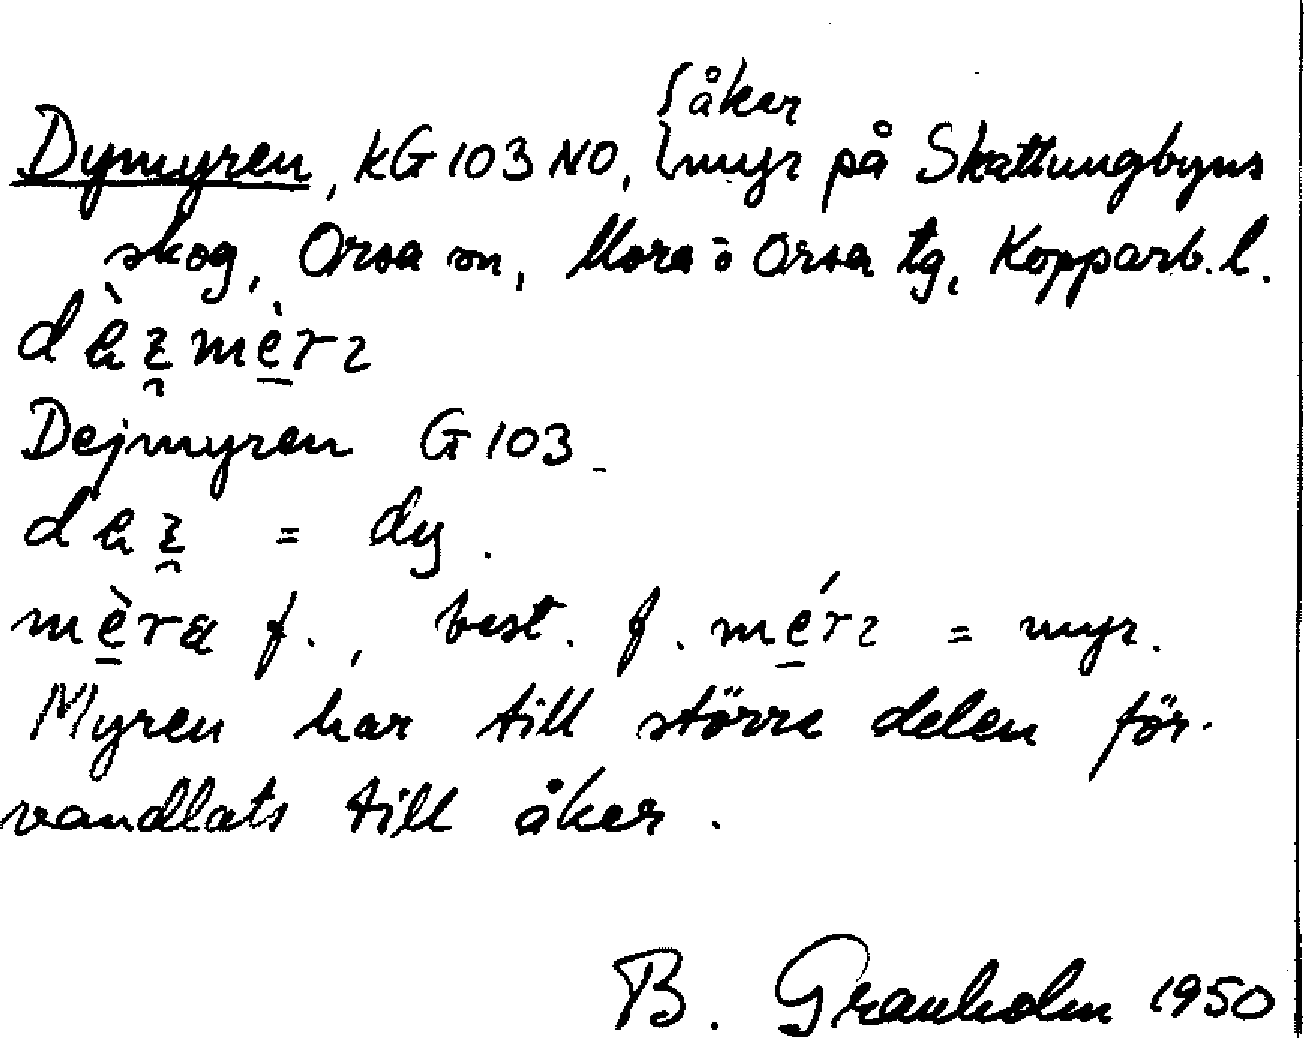 Dymyren, kG 103 NO, { åker
myr på Skattungbyns
skog, Orsa sn, Mora o Orsa tg, Kopparb. l.
Dejmyren G 103
= dy.
f., best. f. = myr.
Myren har till större delen för-
vandlats till åker.
B. Granholm 1950